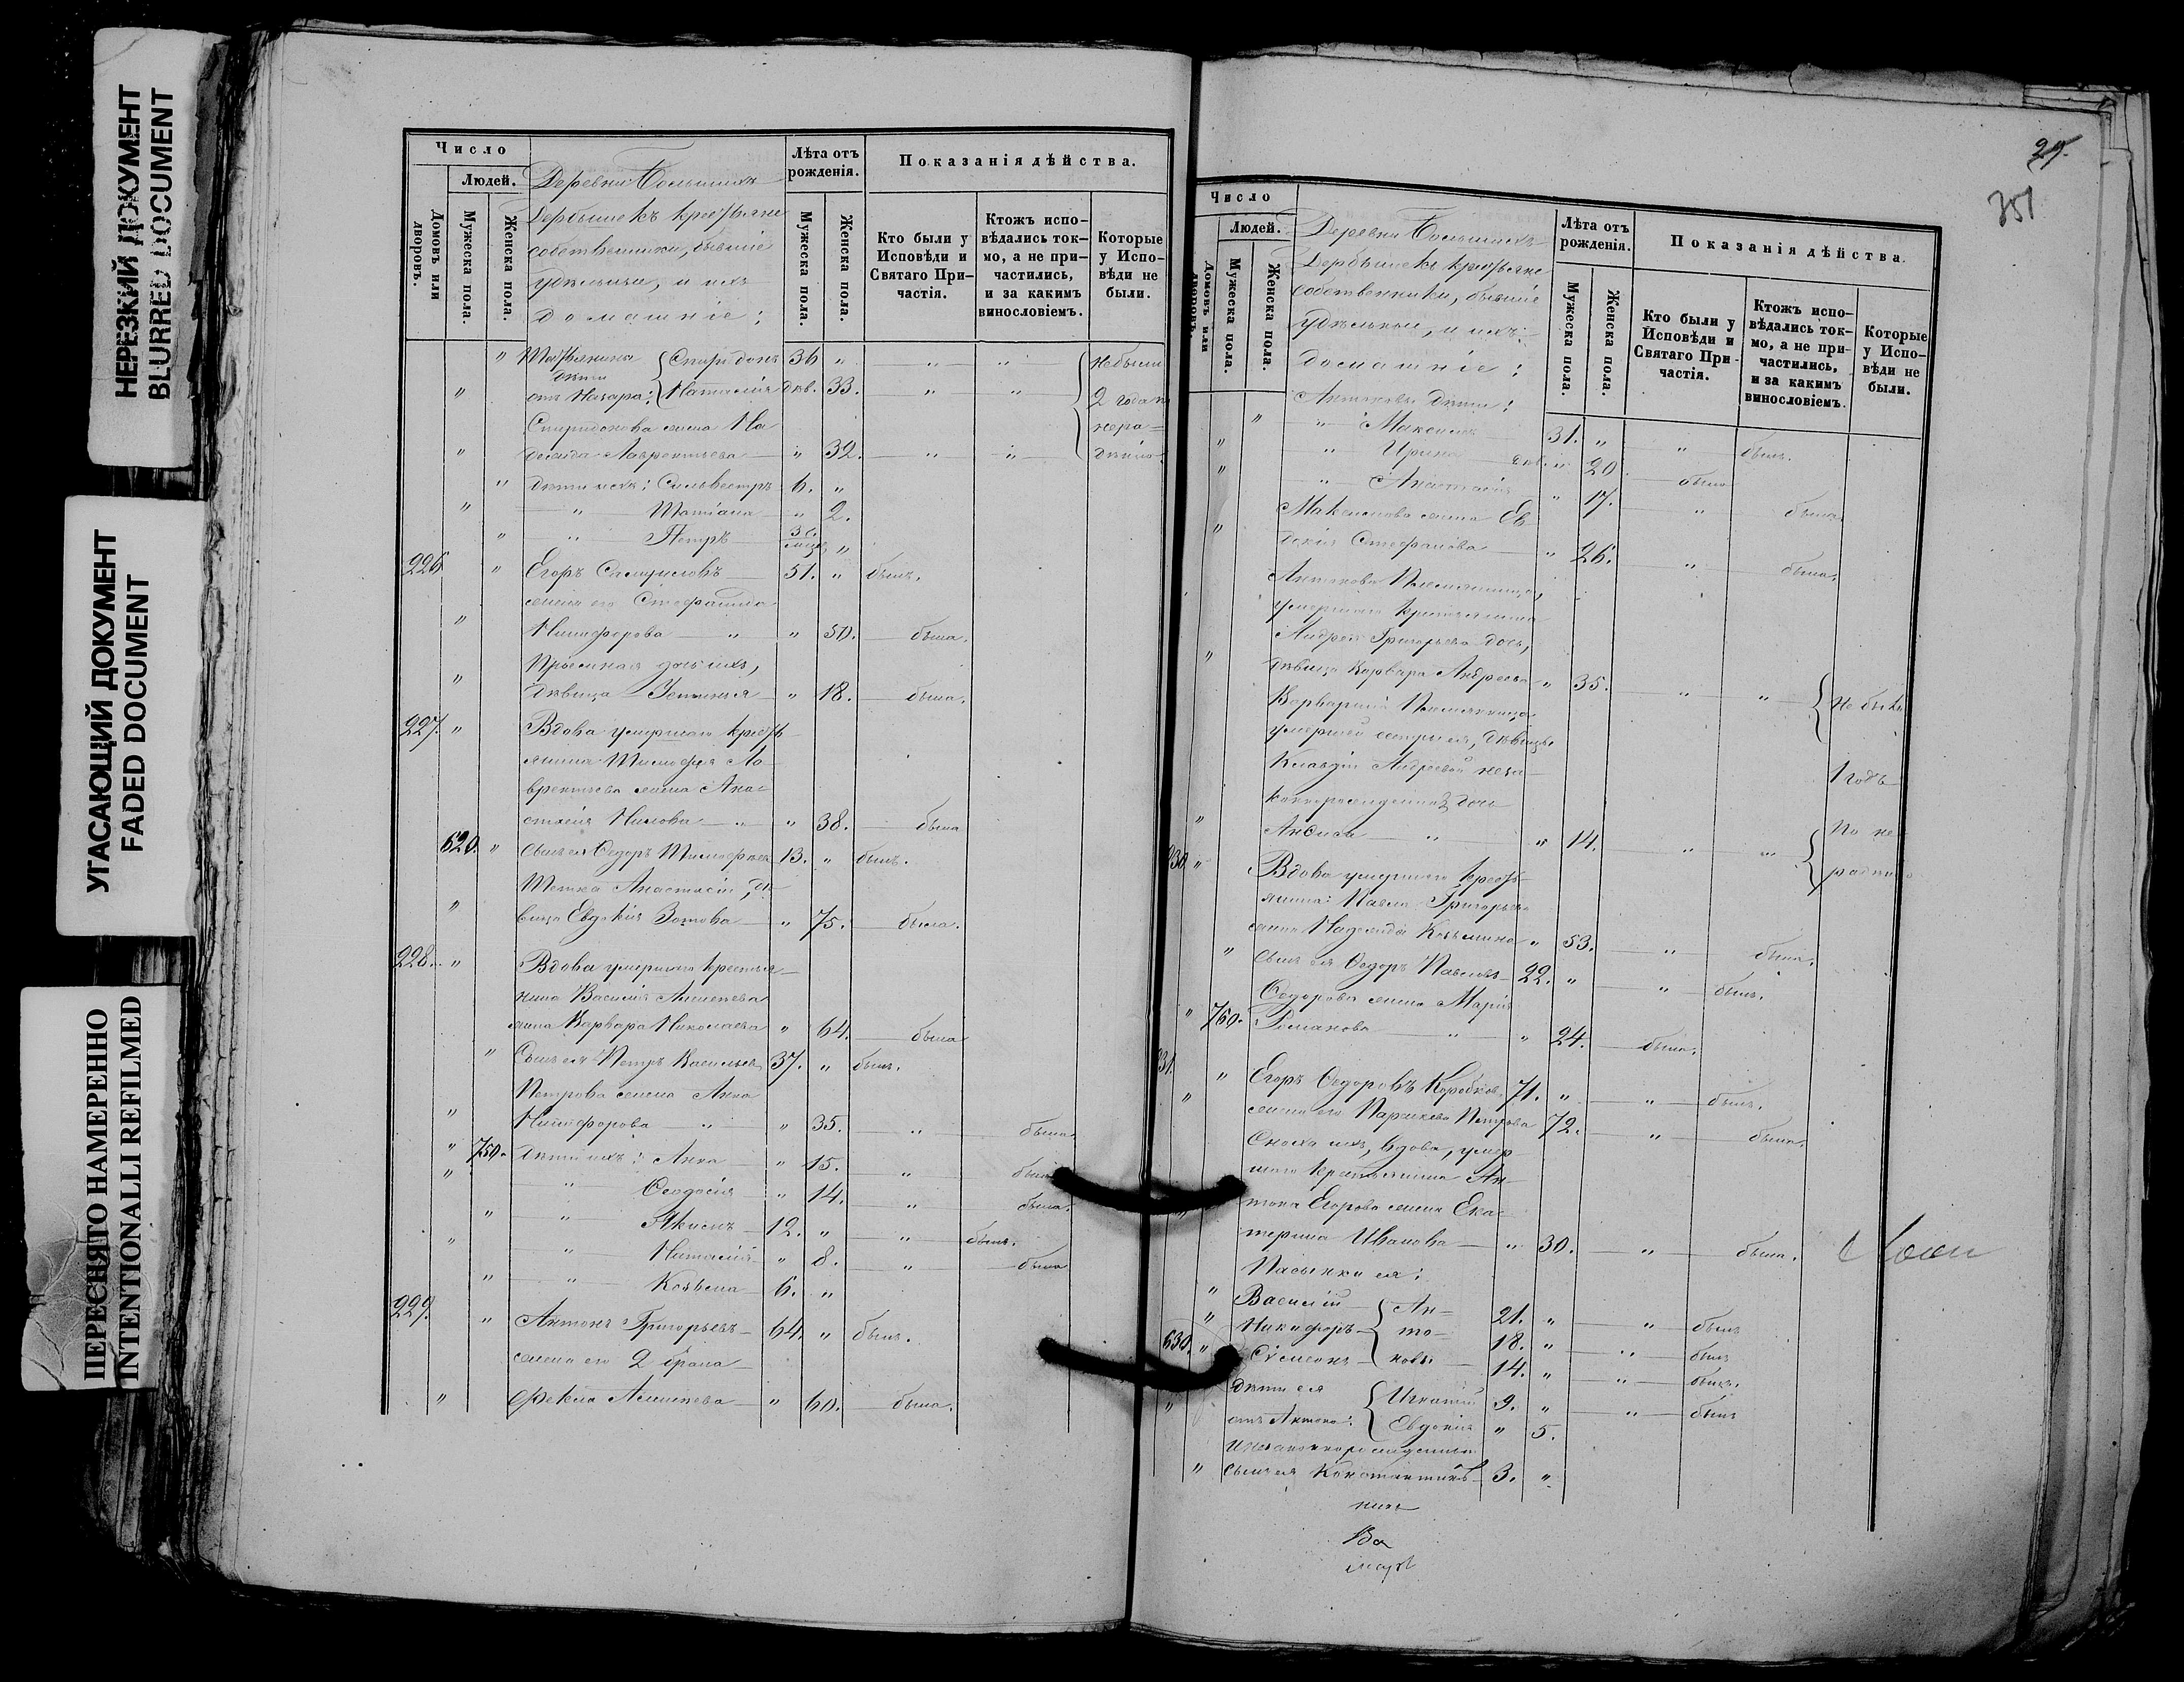 НЕРЕЗКИЙ ДОКУМЕНТ
BLURRED DOCUMENT
УГАСАЮЩИЙ ДОКУМЕНТ
FADED DOCUMENT
ПЕРЕСНЯТО НАМЕРЕННО
INTENTIONALLI REFILMED
Число
Людей.
Домовъ или дворовъ.
Мужеска пола.
Женска пола.
Деревни Большихъ
Дербышекъ крестьяне
собственники, бывшіе
удѣльные, и ихъ
домашніе:
Лѣта отъ рожденія.
Мужеска пола.
Женска пола.
Показанія дѣйства.
Кто были у Исповѣди и Святаго Причастія.
Ктожъ исповѣдались токмо, а не причастились, и за какимъ винословіемъ.
Которые у Исповѣди не были.
" Спиридонъ 36 " " " Не были
дѣти отъ Назара: Наталія дѣв. 33. " " 2 года по
Спиридонова жена На
нера-
дежда Лаврентьева " 32. " " дѣнію.
" Дѣти ихъ: Сильвестръ 6. "
" " Татіана " 2.
" " Петръ "
226 " Егоръ Самуиловъ 51. " былъ.
жена его Стефанида
" Никифорова " " 50. была.
Пріемная дочь ихъ,
" дѣвица Устинья " 18. была.
227. " Вдова умершаго кресть-
янина Тимофея Ла-
врентьева жена Ана-
стасія Нилова " " 38. была
620. " Сынъ ея Ѳедоръ Тимофѣевъ 13. " былъ.
Тетка Анастасіи, дѣ-
" вица Евдокія Зотова " 75. была.
228. " Вдова умершаго крестья-
нина Василія
жена Варвара Николаева " 64. была
" Сынъ ея Петръ Васильевъ 37. " былъ.
Петрова жена Анна
" Никифорова " " 35. " была.
" 750. Дѣти ихъ: Анна " 15. " была
" " Ѳеодосія " 14. " была.
" " Якимъ 12. " " былъ.
" " Наталія " 8. " была
" " Козьма 6. "
229. " Антонъ Григорьевъ 64. " былъ.
жена его 2 брака
" Ѳекла " 60. была.
29.
351
Число
Людей.
Домовъ или дворовъ.
Мужеска пола.
Женска пола.
Деревни Большихъ
Дербышекъ крестьяне
собственники, бывшіе
удѣльные, и ихъ
домашніе:
Лѣта отъ рожденія.
Мужеска пола.
Женска пола.
Показанія дѣйства.
Кто были у Исповѣди и Святаго Причастія.
Ктожъ исповѣдались токмо, а не причастились, и за какимъ винословіемъ.
Которые у Исповѣди не были.
Антоновы дѣти:
" " Максимъ 31. " " былъ.
" " Ирина дѣв. " 20 была
" " Анастасія " 17. " была.
Максимова жена Ев-
" докія Стефанова " 26. " была.
Антонова племянница,
умершаго крестьянина
Андрея Григорьева дочь,
" дѣвица Варвара Андреева " 35. " " Не были
Варварина племянница
умершей сестры ея, дѣвицы
Клавдіи Андреевой неза- 1 годъ
коннорожденная дочь
" Анфиса " " 14. " " По не-
радѣнію
230. " Вдова умершаго кресть-
янина Павла Григорьева
жена Надежда Козьмина " 53. " была.
" Сынъ ея Ѳедоръ Павловъ 22. " " былъ.
Ѳедорова жена Марія
" 760. Романова " " 24. была.
231. " Егоръ Ѳедоровъ Коробковъ 71. " " былъ.
" жена его Параскева Петрова 72. " была.
Сноха ихъ, вдова, умер-
шаго крестьянина Ан-
тона Егорова жена Ека-
" терина Иванова " 30. " была.
Пасынки ея:
" Василій Ан- 21. " " былъ
" Никифоръ то- 18. " " былъ
630. " Симеонъ новы 14. " " былъ.
Дѣти ея Игнатій 9. " " былъ
" отъ Антона: Евдокія " 5.
и незаконнорожденный
" сынъ ея Константинъ 3. "
Ва